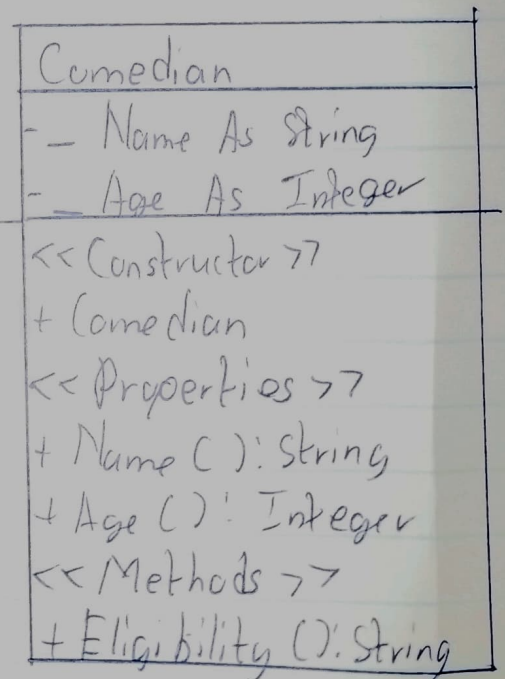 Comedian
- _ Name As String
- _ Age As Integer
<< Constructor >>
+ Comedian
<< Properties >>
+ Name ( ): String
+ Age ( ): Integer
<< Methods >>
+ Eligibility ( ): String